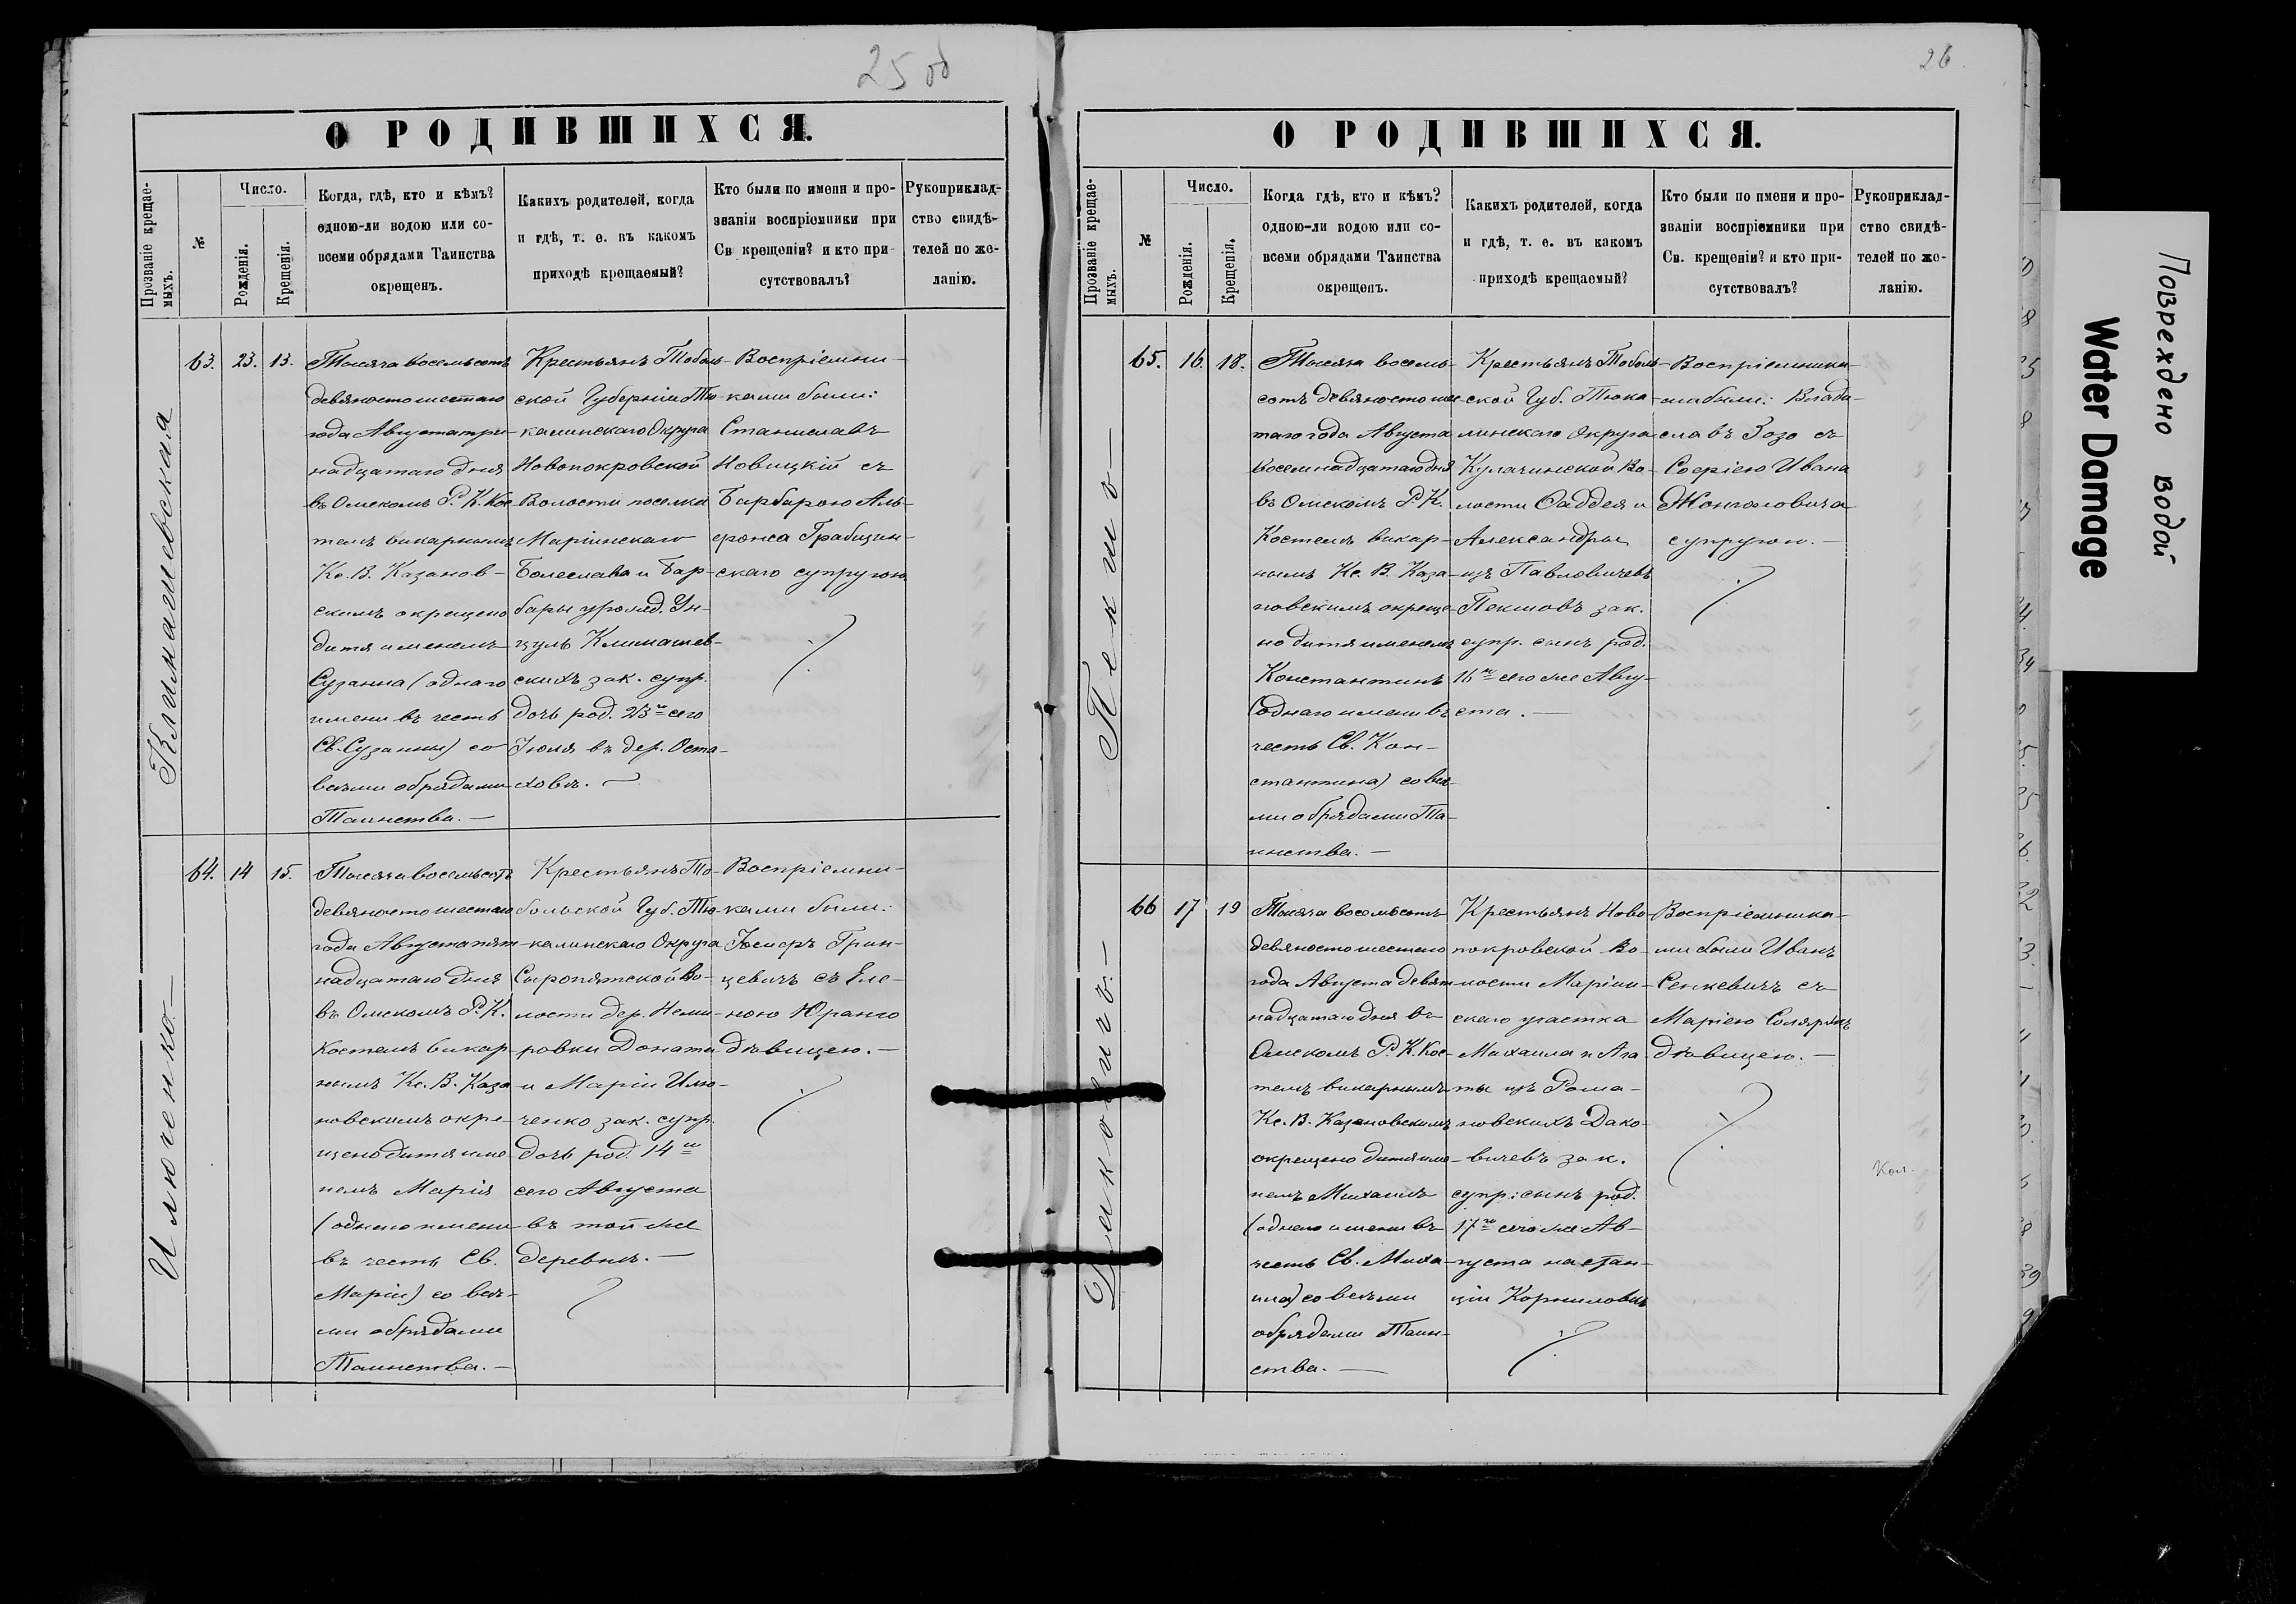 25 об
О РОДИВШИХСЯ.
Прозваніе крещае-
мыхъ.
№
Число.
Рожденія.
Крещенія.
Когда, гдѣ, кто и кѣмъ?
одною-ли водою или со-
всеми обрядами Таинства
окрещенъ.
Какихъ родителей, когда
и гдѣ, т. е. въ какомъ
приходѣ крещаемый?
Кто были по имени и про-
званіи воспріемники при
Св крещеніи? и кто при-
сутствовалъ?
Рукоприклад-
ство свидѣ-
телей по же-
ланію.
Климашевская
63.
23.
13.
Тысяча восемьсотъ
девяносто шестаго
года Августа три-
надцатаго дня
въ Омскомъ Р. К. Кос-
телѣ викарнымъ
Кс. В. Казанов-
скимъ окрещено
дитя именемъ
Сузанна (однаго
имени въ честь
Св. Сузанны) со
всѣми обрядами
Таинства. —
Крестьянъ Тоболь-
ской Губерніи Тю-
калинскаго Округа
Новопокровской
Волости поселка
Маріинскаго
Болеслава и Бар-
бары урожд. Ун-
цуль Климашев-
скихъ зак. супр.
дочь род. 23го сего
Іюля въ дер. Оста-
ховѣ. —
Воспріемни-
ками были:
Станиславъ
Новицкій съ
Барбарою Аль-
фонса Грабицин-
скаго супругою.
Илюченко. —
64.
14
15.
Тысяча восемьсотъ
девяносто шестаго
года Августа пят-
надцатаго дня
въ Омскомъ Р. К.
Костелѣ викар-
нымъ Кс. В. Каза-
новскимъ окре-
щено дитя име-
немъ Марія
(однаго имени
въ честь Св.
Маріи) со всѣ-
ми обрядами
Таинства. —
Крестьянъ То-
больской Губ. Тю-
калинскаго Округа
Сыропятской Во-
лости дер. Неми-
ровки Доната
и Маріи Илю-
ченко зак. супр.
дочь род. 14го
сего Августа
въ той же
деревнѣ. —
Воспріемни-
ками были:
Іосифъ Грин-
цевичъ съ Еле-
ною Юранго
дѣвицею. —
26.
О РОДИВШИХСЯ.
Прозваніе крещае-
мыхъ.
№
Число.
Рожденія.
Крещенія.
Когда гдѣ, кто и кѣмъ?
одною-ли водою или со-
всеми обрядами Таинства
окрещенъ.
Какихъ родителей, когда
и гдѣ, т. е. въ какомъ
приходѣ крещаемый?
Кто были по имени и про-
званіи воспріемники при
Св. крещеніи? и кто при-
сутствовалъ?
Рукоприклад-
ство свидѣ-
телей по же-
ланію.
Пекшо —
65.
16.
18.
Тысяча восемь-
сотъ девяносто шес-
таго года Августа
восемнадцатаго дня
въ Омскомъ Р К.
Костелѣ викар-
нымъ Кс. В. Каза-
новскимъ окреще-
но дитя именемъ
Константинъ
(однаго имени въ
честь Св. Кон-
стантина) со всѣ-
ми обрядами Та-
инства. —
Крестьянъ Тоболь-
ской Губ. Тюка-
линскаго Округа
Кулачинской Во-
лости Фаддея и
Александры
изъ Павловичевъ
Пекшовъ зак.
супр. сынъ род.
16го сего же Авгу-
ста. —
Воспріемника-
ми были: Влади-
славъ Зозо съ
Софіею Ивана
Жонголовича
супругою. —
Даковичъ. —
66
17
19
Тысяча восемьсотъ
девяносто шестаго
года Августа девят-
надцатаго дня въ
Омскомъ Р. К. Кос-
телѣ викарнымъ
Кс. В. Казановскимъ
окрещено дитя име-
немъ Михаилъ
(однаго имени въ
честь Св. Миха-
ила) со всѣми
обрядами Таин-
ства. —
Крестьянъ Ново-
покровской Во-
лости Маріин-
скаго участка
Михаила и Ага-
ты изъ Рома-
новскихъ Дако-
вичевъ зак.
супр. сынъ род.
17го сего же Ав-
густа на стан-
ціи Корниловкѣ
Воспріемника-
ми были Иванъ
Сенкевичъ съ
Маріею Соляринъ
дѣвицею. —
Повреждено водой
Water Damage